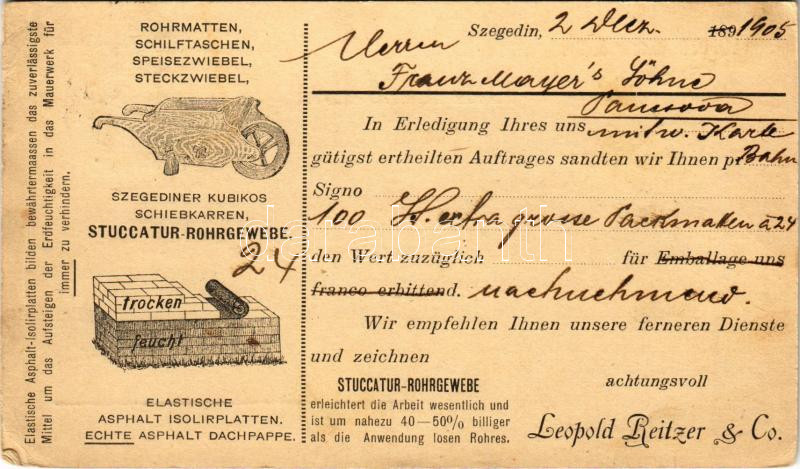 Elastische Asphalt-Isolirplatten bilden bewährtermaassen das zuverlässigste
Mittel um das Aufsteigen der Erdfeuchtigkeit in das Mauerwerk für
immer zu verhindern.
ROHRMATTEN,
SCHILFTASCHEN,
SPEISEZWIEBEL,
STECKZWIEBEL,
SZEGEDINER KUBIKOS
SCHIEBKARREN,
STUCCATUR-ROHRGEWEBE.
24
trocken
feucht
ELASTISCHE
ASPHALT ISOLIRPLATTEN.
ECHTE ASPHALT DACHPAPPE.
Szegedin, 2 Dez. 189 1905
Herren
Franz Mayer's Söhne
Pancsova
In Erledigung Ihres uns mit w. Karte
gütigst ertheilten Auftrages sandten wir Ihnen pr Bahn
Signo
100 St. extra grosse Packmatten à 24
den Wert zuzüglich für Emballage uns
franco erbittend. nachnehmend.
Wir empfehlen Ihnen unsere ferneren Dienste
und zeichnen
achtungsvoll
STUCCATUR-ROHRGEWEBE
erleichtert die Arbeit wesentlich und
ist um nahezu 40—50% billiger
als die Anwendung losen Rohres.
Leopold Reitzer & Co.
darabanth.com